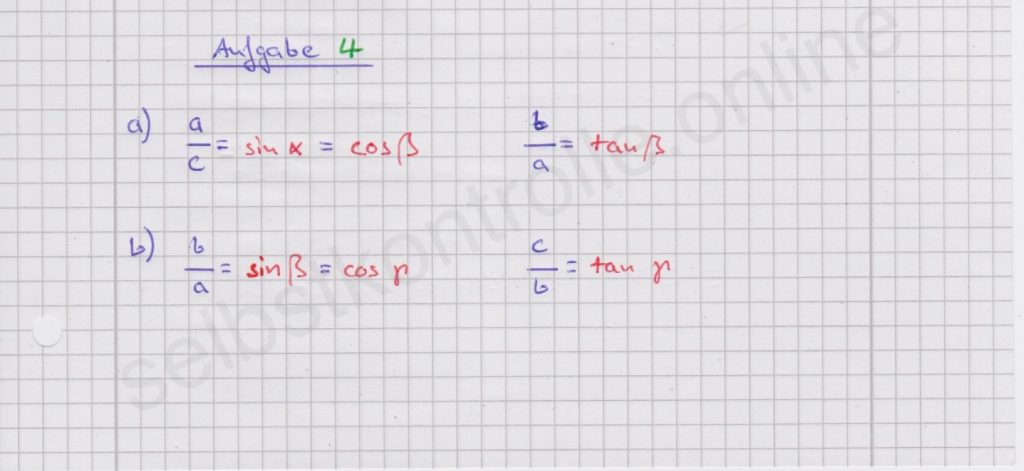 Aufgabe 4
a) a/c = sin α = cos β b/a = tan β
b) b/a = sin β = cos γ c/b = tan γ
selbstkontrolle.online